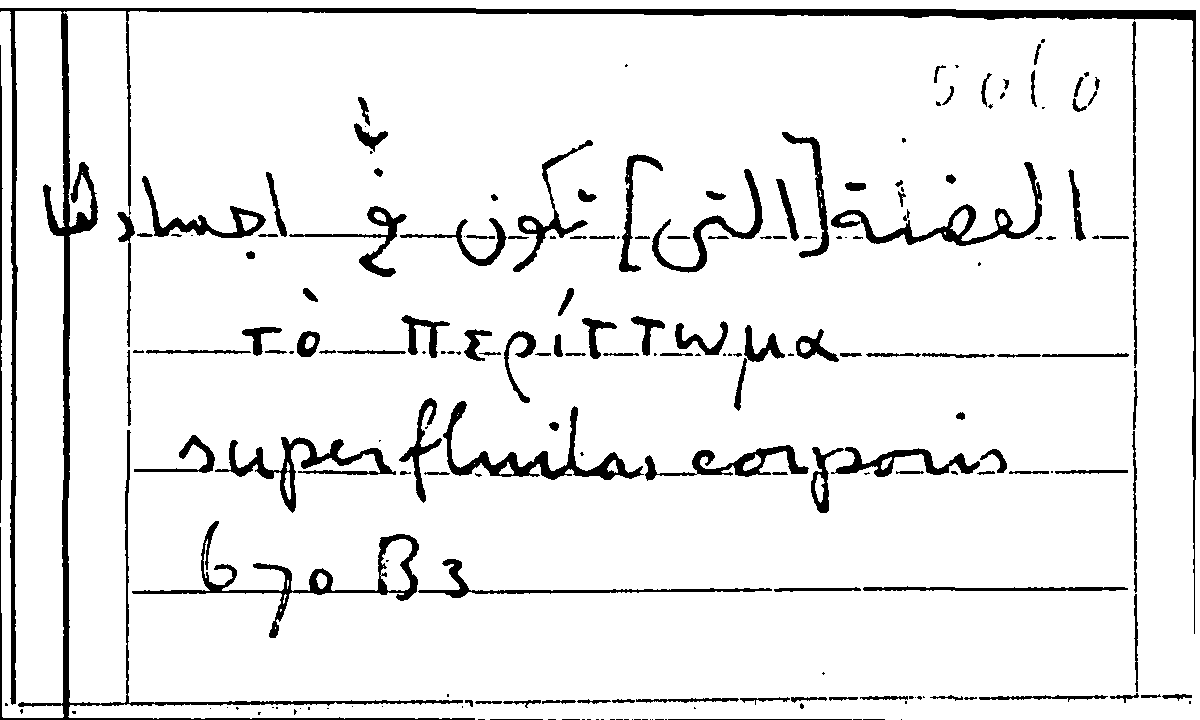 5060
↓
الفضلة [التى] تكون فى اجسادها
τὸ περίττωμα
superfluitas corporis
670 B3